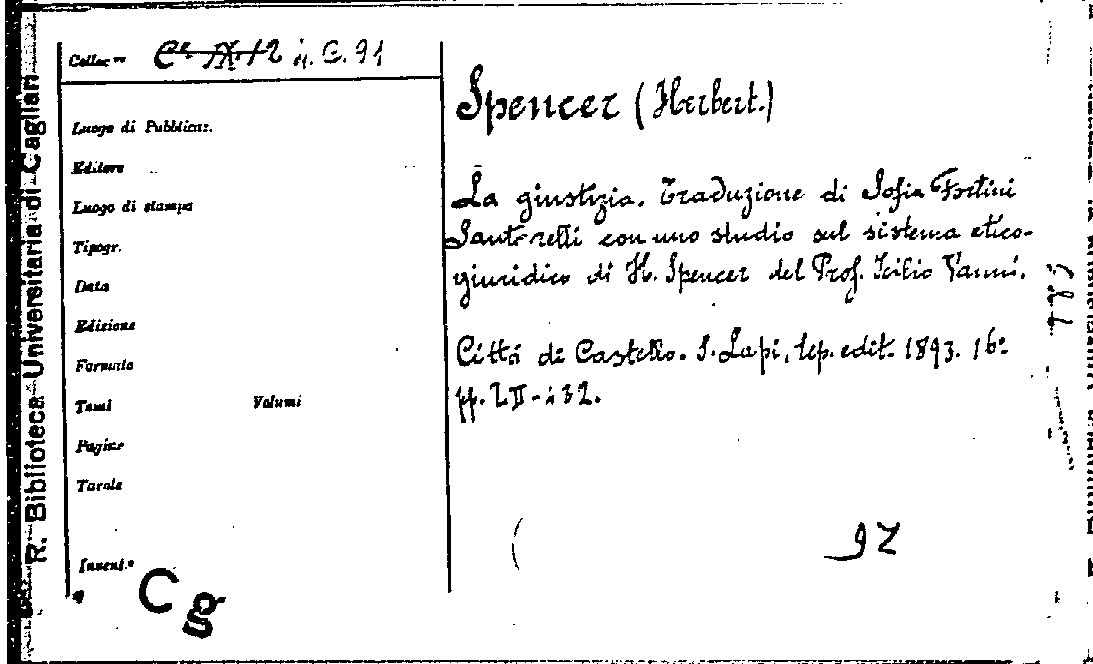 R. Biblioteca Universitaria di Cagliari
Colloc.ne C. IX. 12 n. C. 91
Luogo di Pubblicaz.
Editore
Luogo di stampa
Tipogr.
Data
Edizione
Formato
Tomi Volumi
Pagine
Tavole
Invent.o
Cg
Spencer (Herbert.)
La giustizia. Traduzione di Sofia Fortini
Santarelli con uno studio sul sistema etico-
giuridico di H. Spencer del Prof. Icilio Vanni.
Città di Castello. S. Lapi, tip. edit. 1893. 16º
pp. LII-432.
92